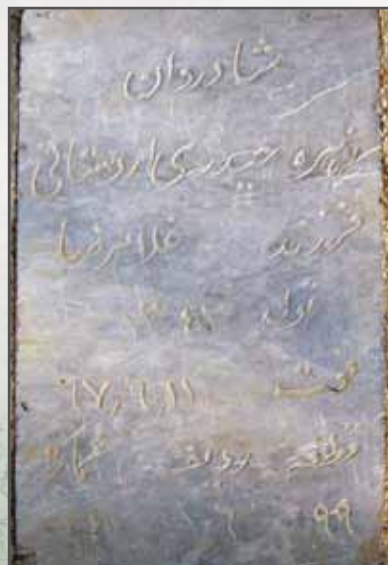 شادروان
زهره حیدری اردهائی
فرزند غلامرضا
تولد
فوت ۶۷٫۶٫۱۱
قطعه ردیف شماره
۹۹